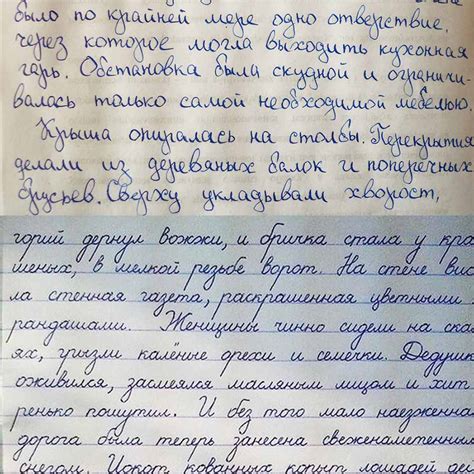 было по крайней мере одно отверствие,
через которое могла выходить кухонная
гарь. Обстановка была скудной и ограничи
валась только самой необходимой мебелью.
Крыша опиралась на столбы. Перекрытия
делали из деревяных балок и поперечных
брусьев. Сверху укладывали хворост,
горий дернул вожжи, и бричка стала у кра
шеных, в мелкой резьбе ворот. На стене вис
ла стенная газета, раскрашенная цветными
рандашами. Женщины чинно сидели на ска
ях, грызли калёные орехи и семечки. Дедушк
оживился, засмеялся масляным лицом и хит
ренько пошутил. И без того мало наезженна
дорога была теперь занесена свеженаметенным
снегом. Цокот кованных копыт лошадей